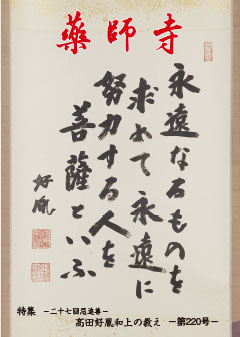 藥師寺
永遠なるものを
求めて永遠に
努力する人を
菩薩といふ
好胤
特集 －二十七回忌追慕－
高田好胤和上の教え －第220号－